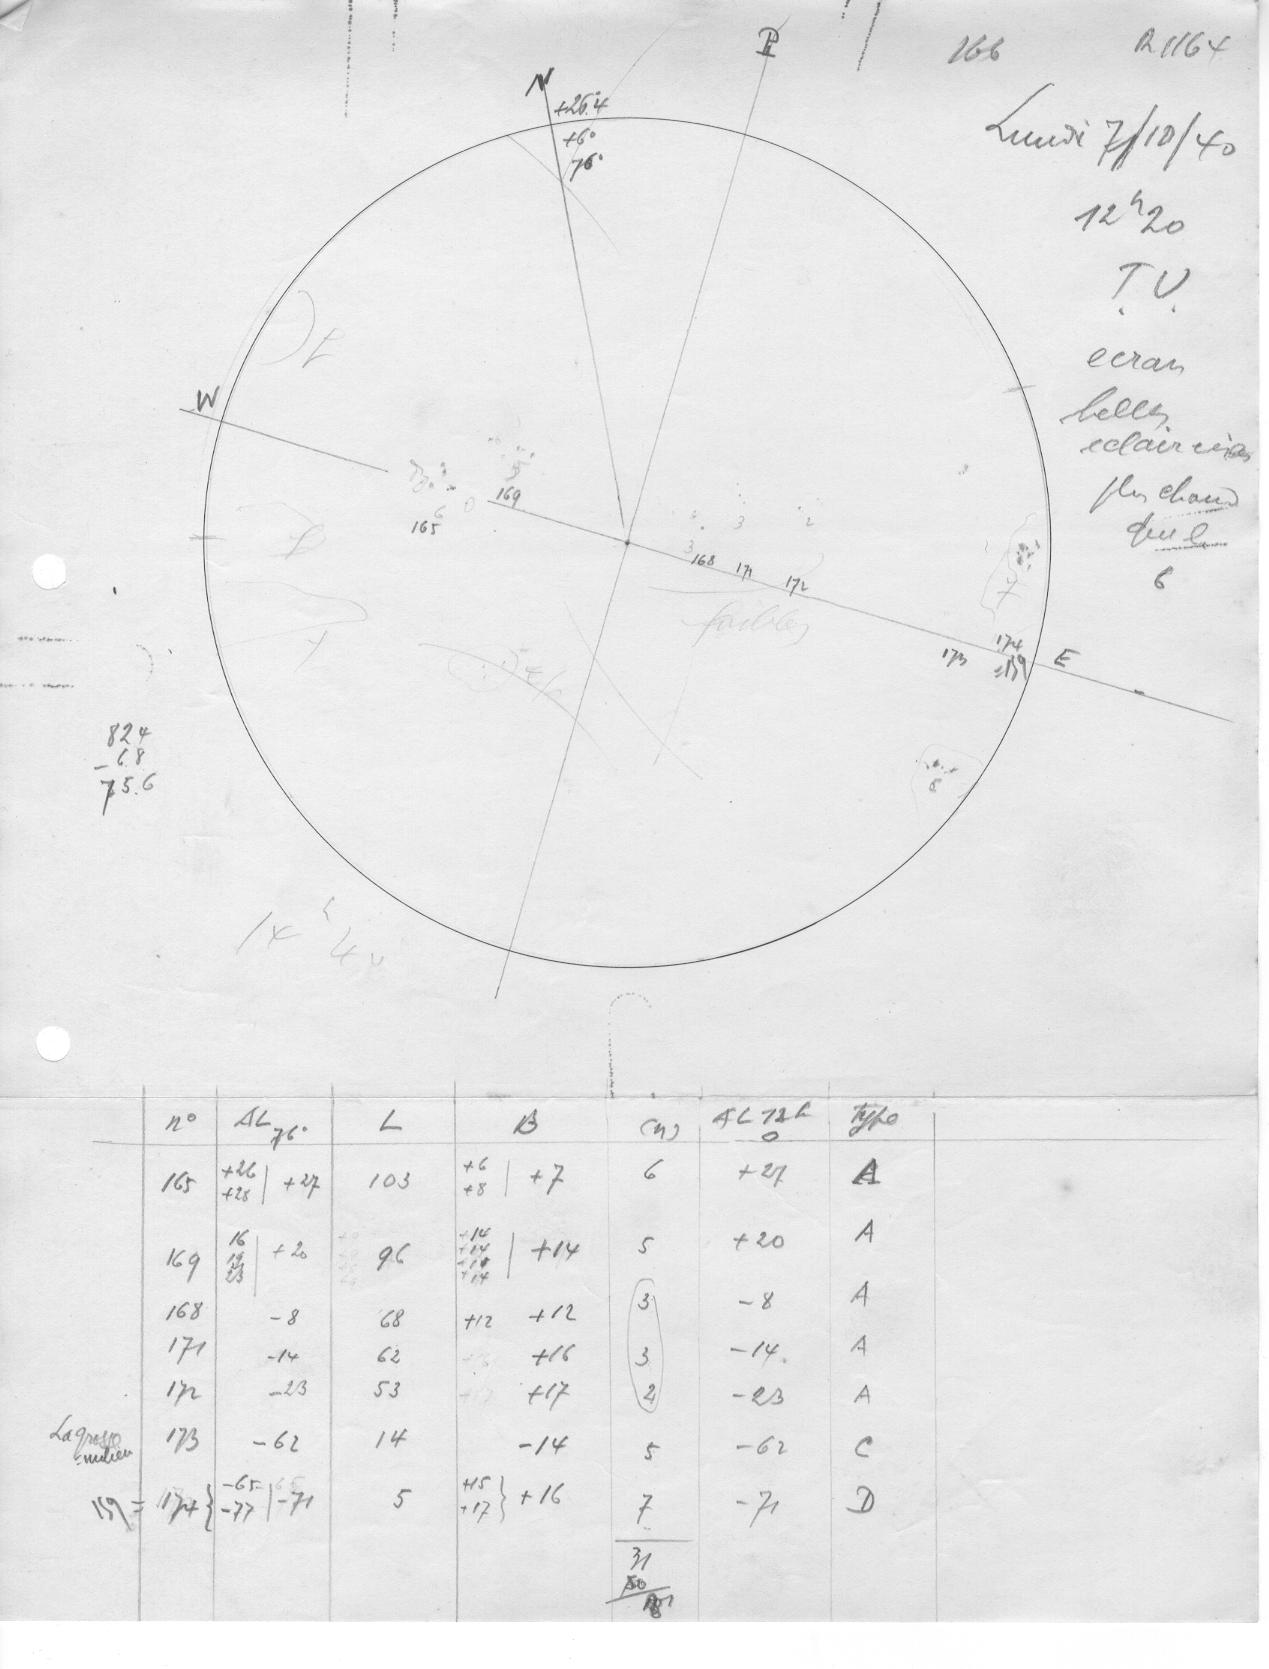 166 R1164
Lundi 7/10/40
12h20
T.U.
ecran
belles
eclaircies
plus chaud
que le
6
N
P
+26°4
+6°
76°
W
169
6
165
3
2
3
168 171 172
faibles
7
174
173 =159
E
8
824
-68
75.6
14h40
n° AL 76° L B (n) AL 12h type
0
165 +26 +28 | +27 103 +6 +8 | +7 6 +27 A
169 16 19 23 | +20 96 +14 +14 +14 +14 | +14 5 +20 A
168 -8 68 +12 +12 3 -8 A
171 -14 62 +16 3 -14 A
172 -23 53 +17 2 -23 A
La grosse
=milieu
173 -62 14 -14 5 -62 C
159 = 174 } -65 -77 | -71 5 +15 +17 } +16 7 -71 D
31
50